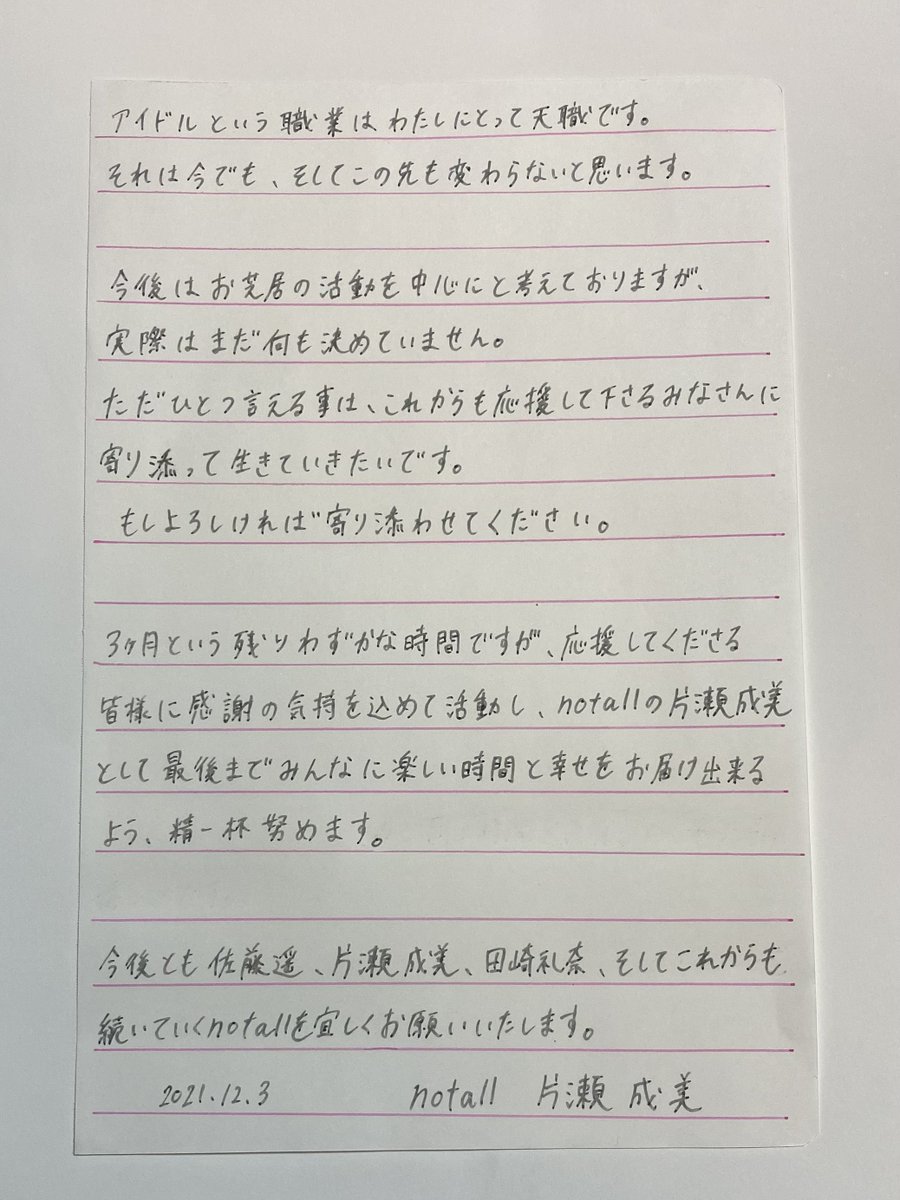 アイドルという職業はわたしにとって天職です。
それは今でも、そしてこの先も変わらないと思います。
今後はお芝居の活動を中心にと考えておりますが、
実際はまだ何も決めていません。
ただひとつ言える事は、これからも応援して下さるみなさんに
寄り添って生きていきたいです。
もしよろしければ寄り添わせてください。
3ヶ月という残りわずかな時間ですが、応援してくださる
皆様に感謝の気持を込めて活動し、notallの片瀬成美
として最後までみんなに楽しい時間と幸せをお届け出来る
よう、精一杯努めます。
今後とも佐藤遥、片瀬成美、田崎礼奈、そしてこれからも
続いていくnotallを宜しくお願いいたします。
2021.12.3 notall 片瀬 成美